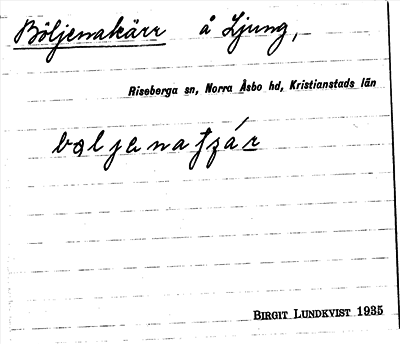 Böljenakärr å Ljung,
Riseberga sn, Norra Åsbo hd, Kristianstads län
BIRGIT LUNDKVIST 1935